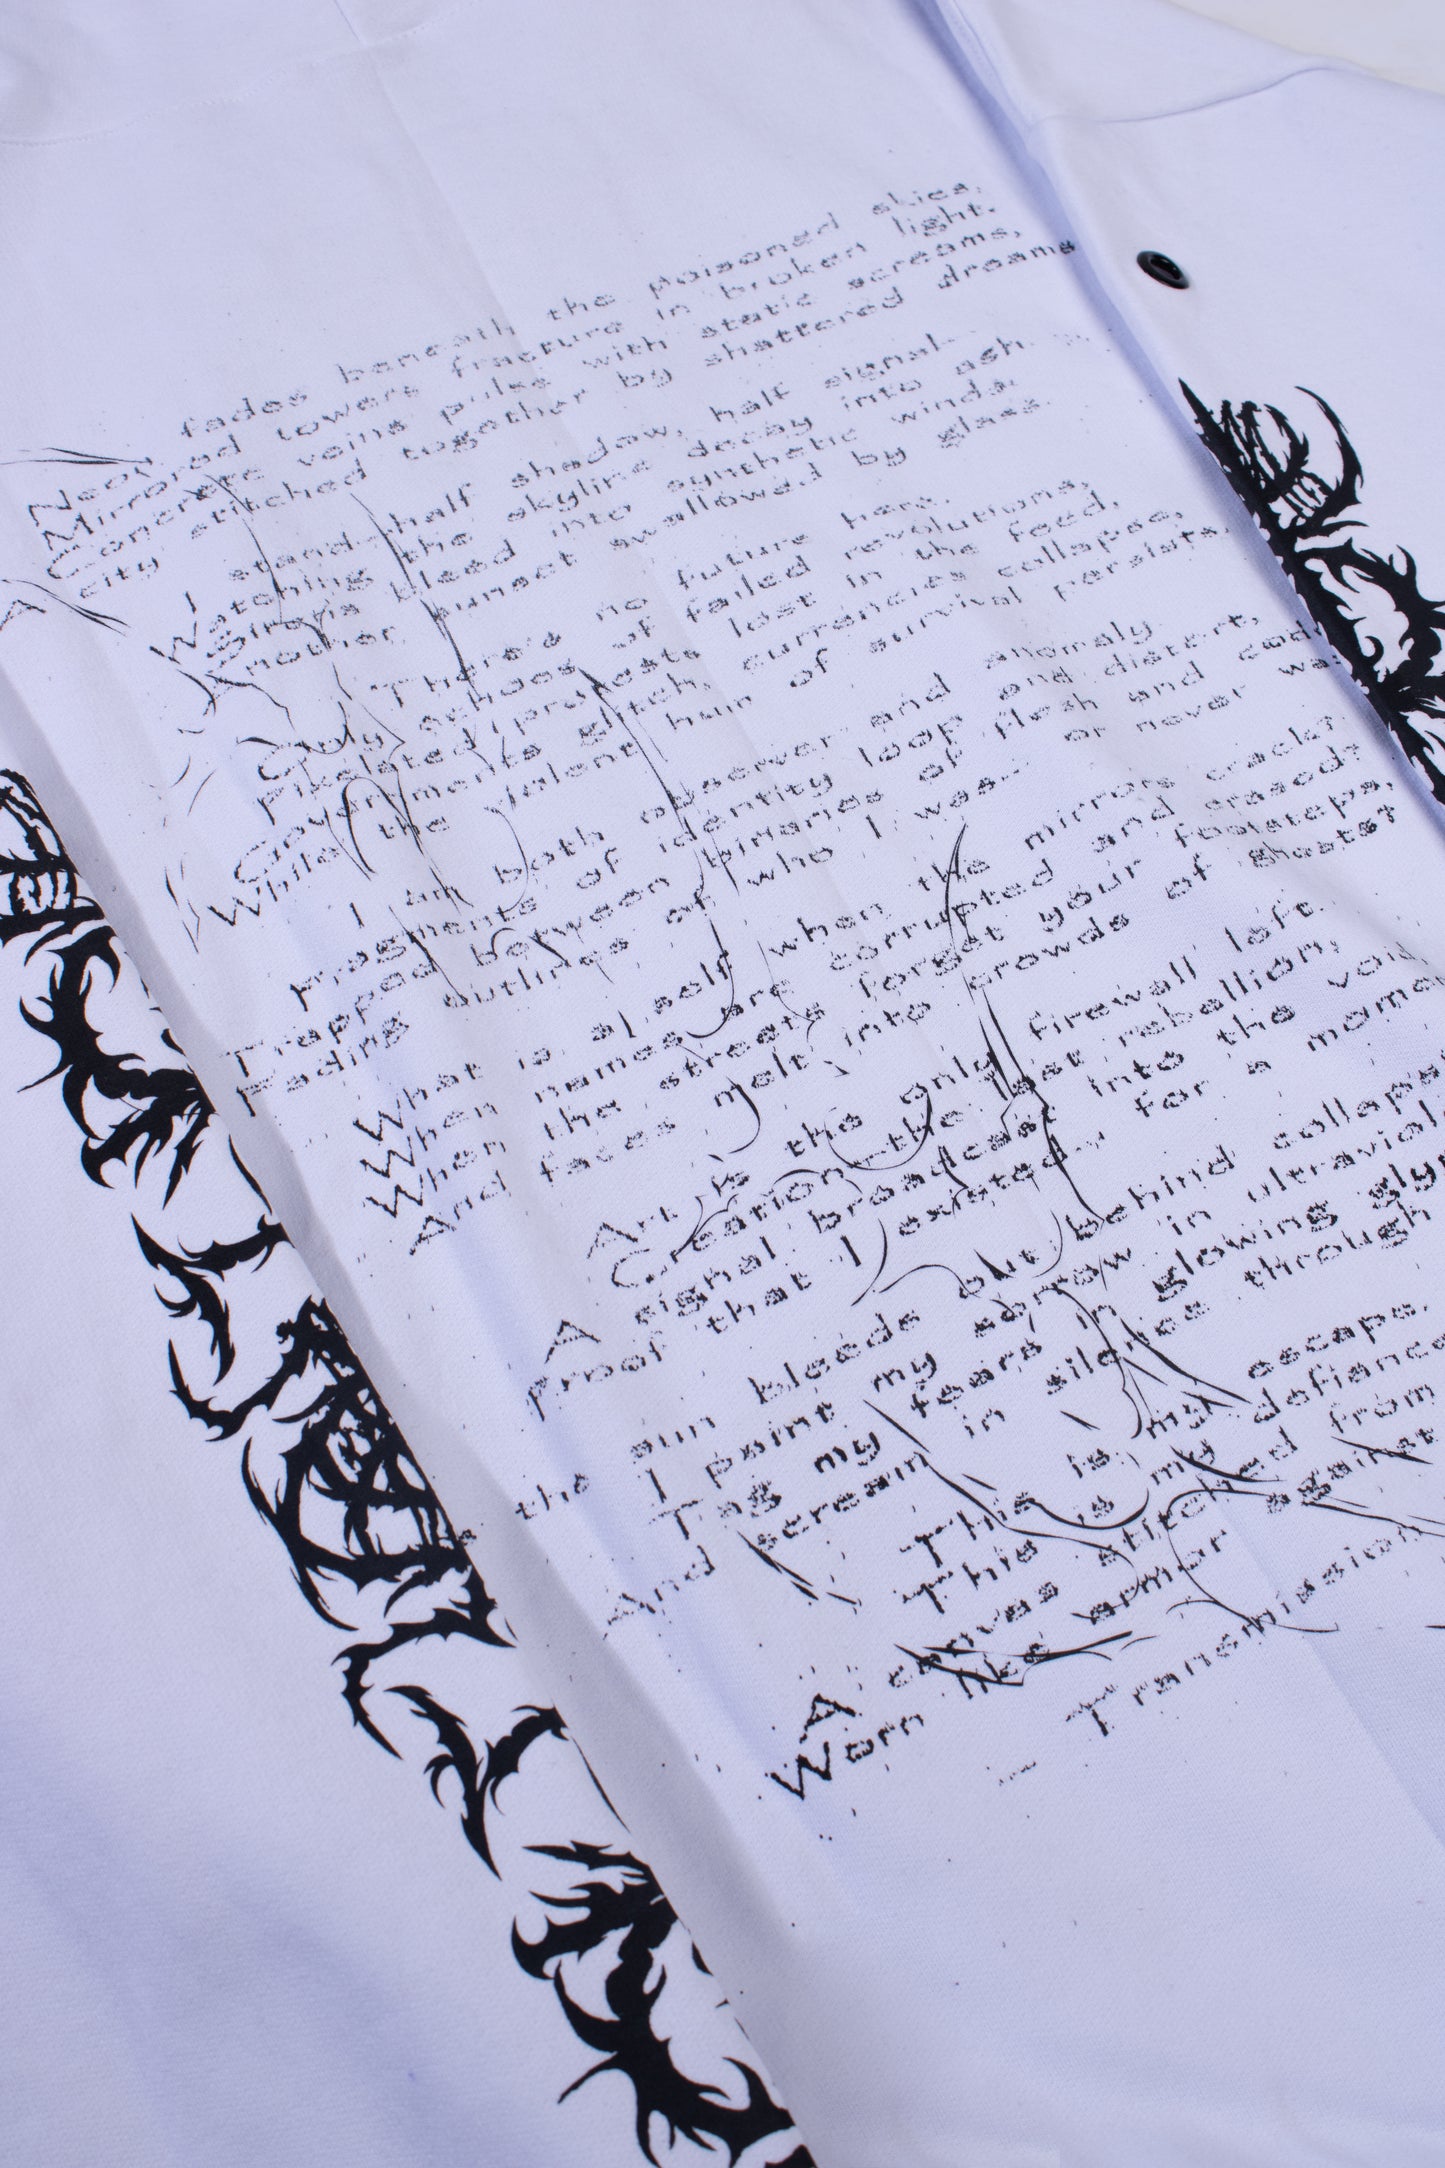 Neon fades beneath the poisoned skies,
Mirrored towers fracture in broken light.
Concrete veins pulse with static screams,
A city stitched together by shattered dreams
I stand half shadow, half signal
Watching the skyline decay into ash.
Sirens bleed into synthetic winds,
Another sunset swallowed by glass.
There's no future here,
Only echoes of failed revolutions,
Pixelated protests lost in the feed,
Governments glitch, currencies collapse,
While the violent hum of survival persists.
I am both observer and anomaly
Fragments of identity loop and distort,
Trapped between binaries of flesh and cod
Fading outlines of who I was... or never wa
What is a self when the mirrors crack,
When names are corrupted and erased?
When the streets forget your footsteps,
And faces melt into crowds of ghosts?
Art is the only firewall left.
Creation the last rebellion,
A signal broadcast into the void,
Proof that I existed... for a mome
the sun bleeds out behind collaps
I paint my sorrow in ultraviol
Tag my fears in glowing gly
And scream in silence through
This is my escape,
This is my defiance
A canvas stitched from
Worn like armor against
— Transmission